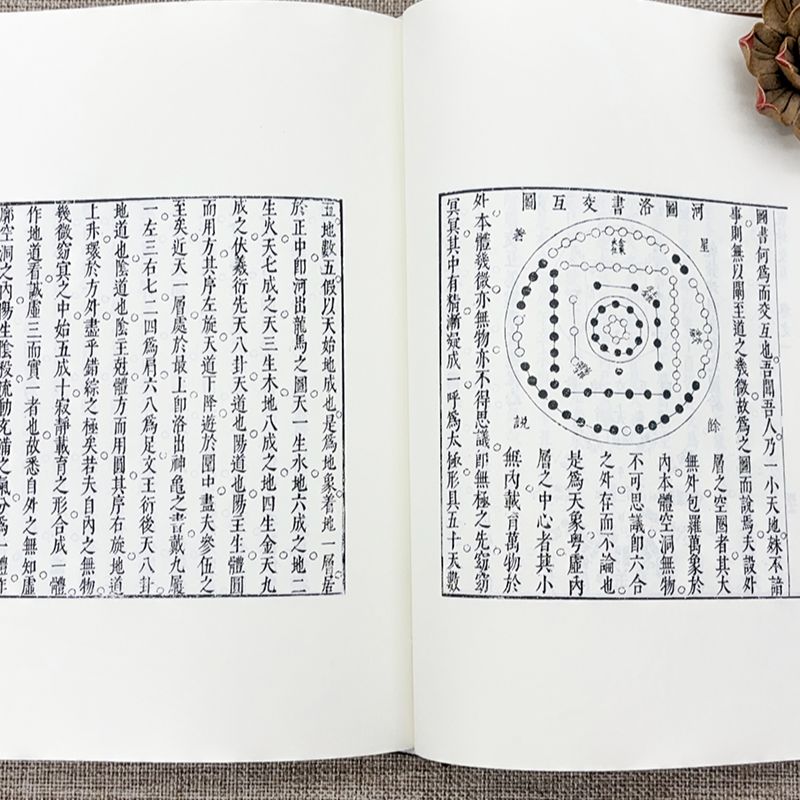 河圖洛書交互圖
圖書何爲而交互也吾聞吾人乃一小天地姝不諳
事則無以關王道之幾微故爲之圖而說焉夫設外
星
餘
著
說
層之空圈者其大
無外包羅萬象於
內本體空洞無物
不可思議即六合
之外存而不論也
是爲天象粤虛內
層之中心者其小
無內載育萬物於
外本體幾微亦無物亦不得思議即無極之先窈窈
冥冥其中有精漸凝成一呼爲太極形具五十天數
五地數五假以天始地成也是爲地象着地一層居
於正中即河出龍馬之圖天一生水地六成之地二
生火天七成之天三生木地八成之地四生金天九
成之伏羲衍先天八卦天道也陽道也陽主生體圓
而用方其序左旋天道下降遊於圍中盡夫參伍之
至矣近天一層處於最上即洛出神龜之書戴九履
一左三右七二四爲肩六八爲足文王衍後天八卦
地道也陰道也陰主尅體方而用圓其序右旋地道
上升環於方外盡乎錯綜之極矣若夫自內之無物
幾微窈冥之中始五成十寂靜載育之形合成一體
作地道看誠虛三而實一者也故悉自外之無知虛
廓空洞之內陽生陰殺流動充滿之氣分爲一體作